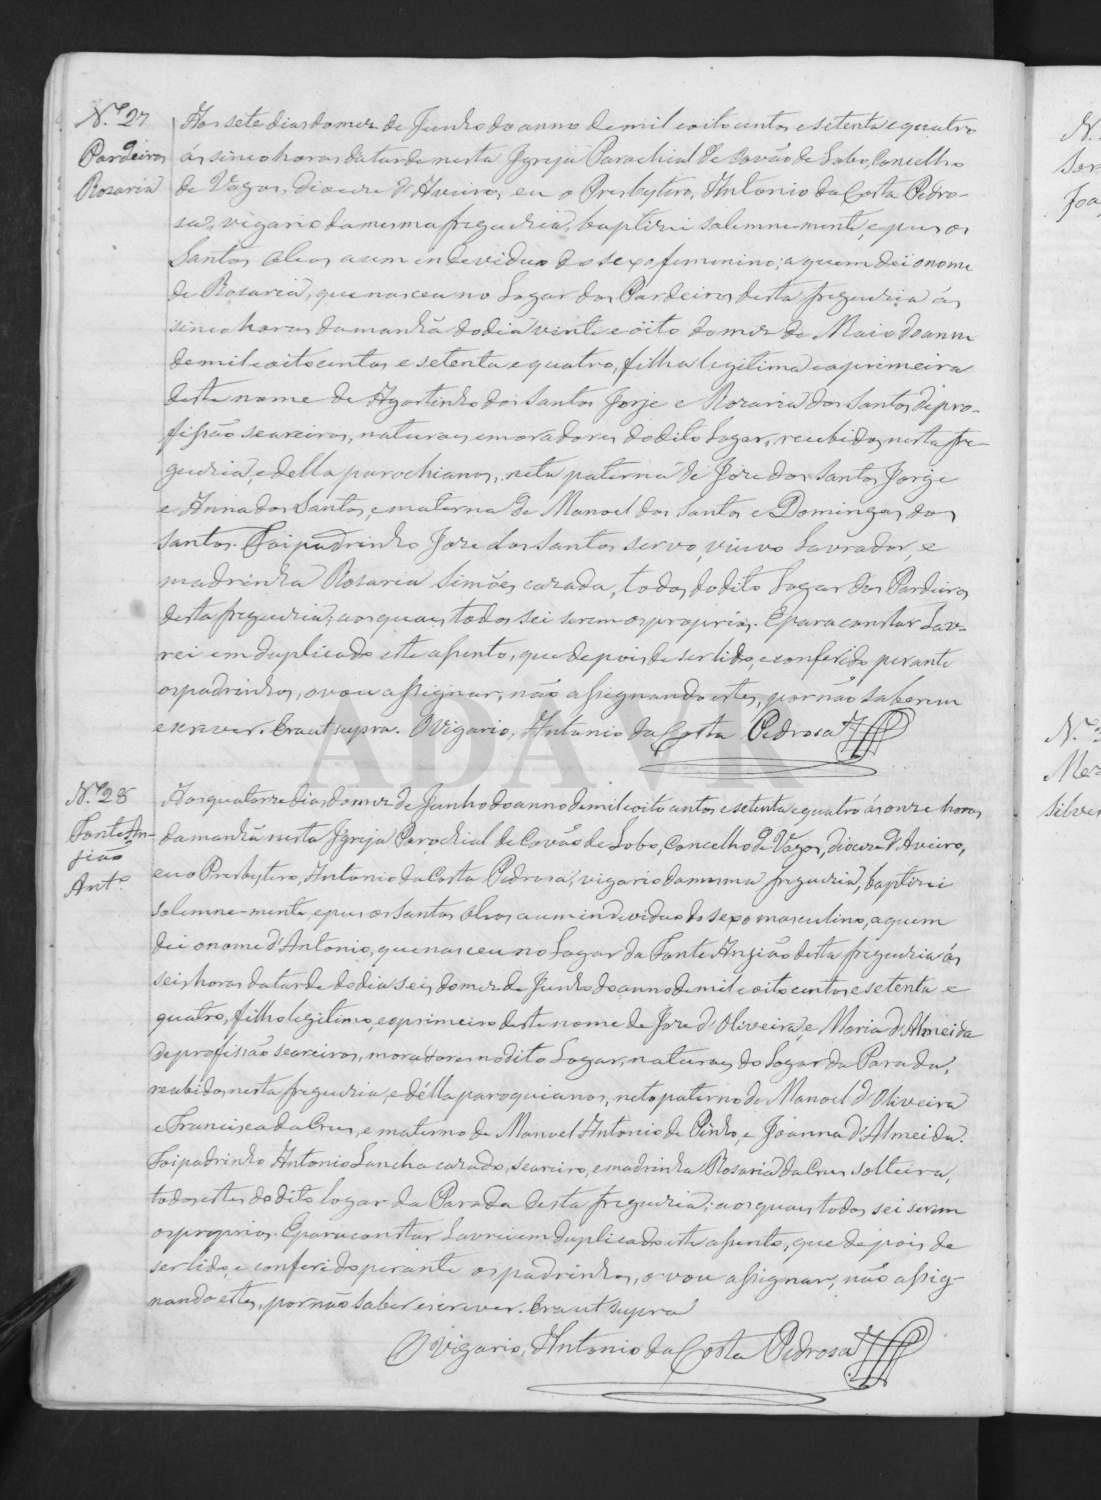 N.º 27
Pardeiros
Rosaria
Aos sete dias do mez de Junho do anno de mil e oito centos e setenta e quatro
ás sinco horas da tarde nesta Igreja Parochial de Covão de Lobo, Concelho
de Vagos, diocese d'Aveiro, eu o Presbytero, Antonio da Costa Pedro-
sa, vigario da mesma freguezia, baptizei solemne-mente, e puz os
Santos Oleos a um endeviduo do sexo femenino; a quem dei o nome
de Rosaria, que nasceu no Logar dos Pardeiros desta freguezia ás
sinco horas da manhã do dia vinte e oito do mez de Maio do anno
de mil e oito centos e setenta e quatro, filha legitima e a primeira
deste nome de Agostinho dos Santos Jorje e Rozaria dos Santos de pro-
fissão seareiros, naturaes e moradores do dito Logar, recebidos nesta fre-
guezia, e della parochianos, neta paterna de Joze dos Santos Jorge
e Anna dos Santos, e materna de Manoel dos Santos e Domingas dos
Santos. Foi padrinho Joze dos Santos servo, viuvo Lavrador, e
madrinha Rosaria Simões, cazada, todos do dito Logar dos Pardeiros
desta freguezia; aos quaes todos sei serem os proprios. E para constar Lav-
rei em duplicado este assento, que depois de ser lido, e conferido perante
os padrinhos, o vou assignar, não assignando estes, por não saberem
escrever. Era ut supra. O Vigario, Antonio da Costa Pedrosa
ADAVR
N.º 28
Fonte An-
gião
Ant.º
Aos quatorze dias do mez de Junho do anno de mil e oito centos e setenta e quatro ás onze horas
da manhã nesta Igreja Parochial de Covão de Lobo, Concelho de Vagos, diocese d'Aveiro,
eu o Presbytero, Antonio da Costa Pedrosa, vigario da mesma freguezia, baptizei
solemne-mente, e puz os Santos Oleos a um individuo do sexo masculino, a quem
dei o nome d'Antonio, que nasceu no Logar da Fonte Angião desta freguezia ás
seis horas da tarde do dia seis do mez de Junho do anno de mil e oito centos e setenta e
quatro, filho legitimo, e o primeiro deste nome de Joze d'Oliveira, e Maria d'Almeida
de profissão seareiros, moradores no dito Logar, naturaes do Logar da Parada,
recebidos nesta freguezia, e délla paroquianos, neto paterno de Manoel d'Oliveira
e Francisca da Cruz, e materno de Manoel Antonio de Pinho, e Joanna d'Almeida.
Foi padrinho Antonio Lancha cazado, seareiro, e madrinha Rosaria da Cruz solteira,
todos estes do dito logar da Parada desta freguezia; aos quaes todos sei serem
os proprios. E para constar Lavrei em duplicado este assento, que depois de
ser lido, e conferido perante os padrinhos, o vou assignar, não assig-
nando estes, por não saber escrever. Era ut supra
O Vigario, Antonio da Costa Pedrosa